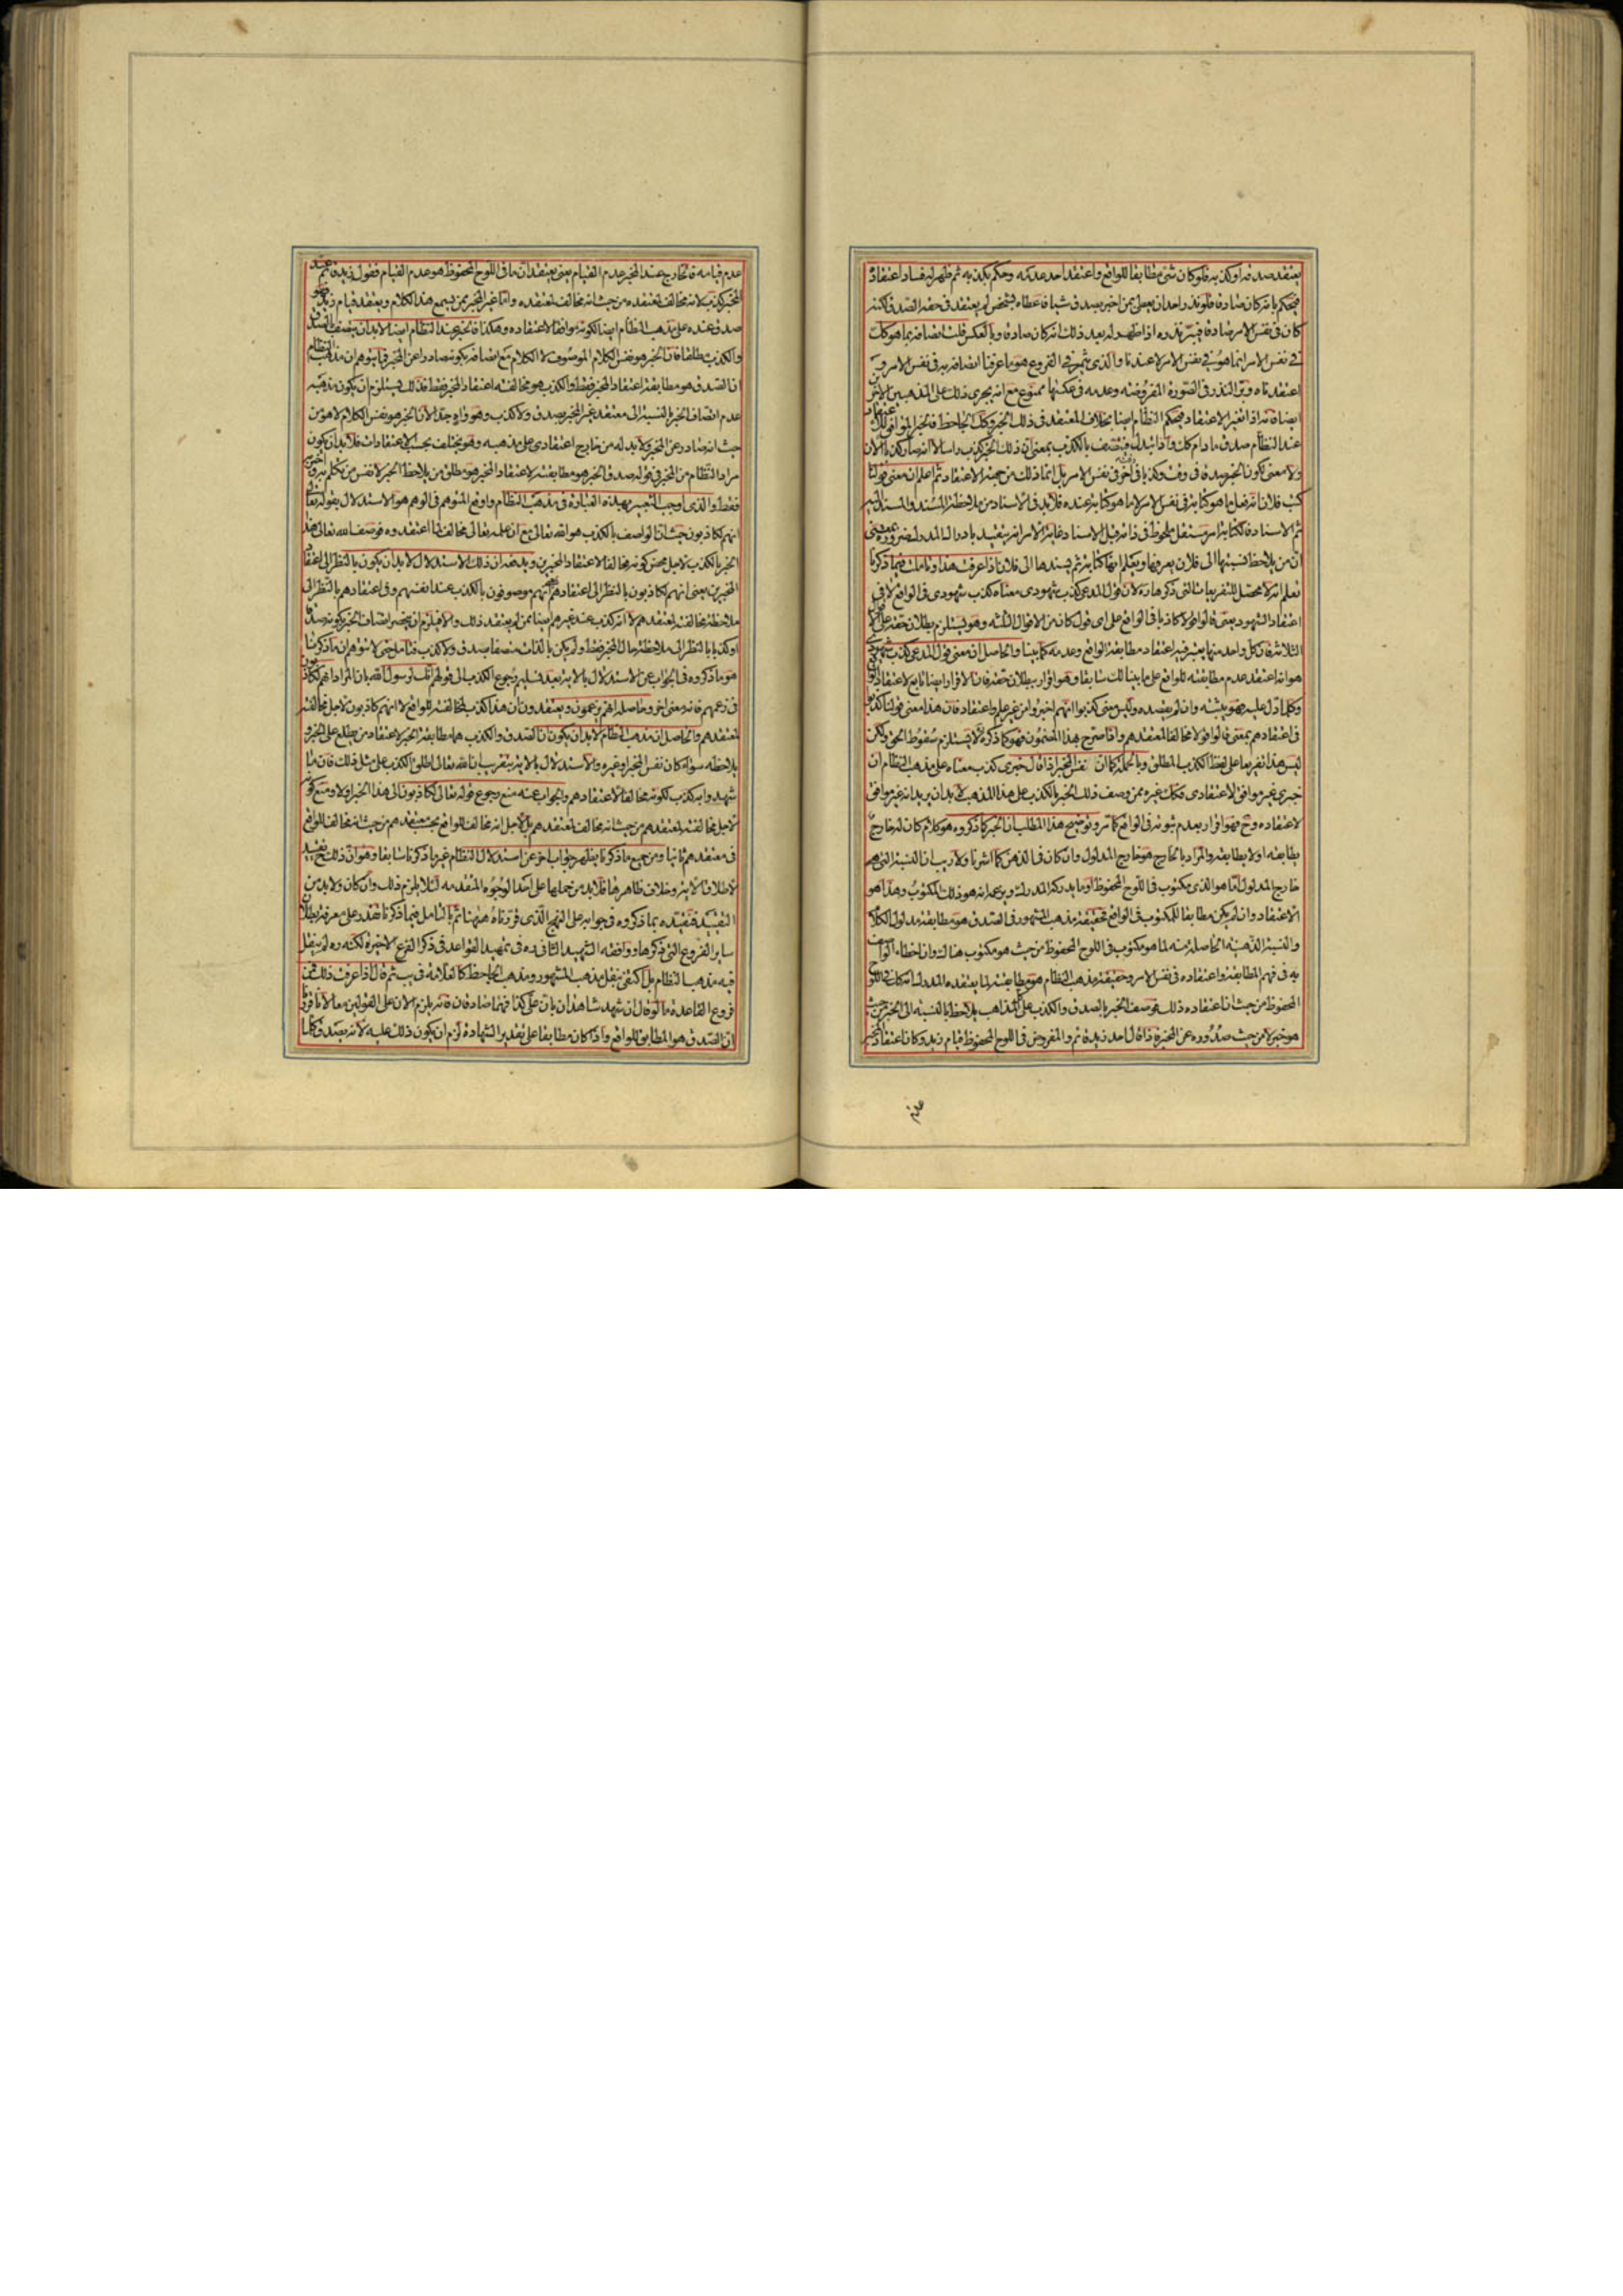 يعتقد صدقه او كذبه فلو كان شئ مطابقا للواقع واعتقد احد عدمه وحكم بكذبه ثم ظهر له فساد اعتقاده
فيحكم بانه كان صادقا فلو نذر احد ان يعطى من اخبر بصدق شيئا فاعطاه لشخص لم يعتقد في حقه الصدق لكنه
كان في نفس الامر صادقا فيبرّ نذره اذا ظهر له بعد ذلك انه كان صادقا وبالعكس قلت اتصافه بما هو كك
في نفس الامر انما هو في نفس الامر لا عندنا والذي يثمر في الفروع هو ما عرفنا اتصافه به في نفس الامر و
اعتقدناه وبرّ النذر في الصورة المفروضة وعدمه في عكسها ممنوع مع انه يجرى ذلك على المذهبين الاخيرين
ايضا فانه اذا تغير الاعتقاد فيحكم النظّام ايضا بخلاف المعتقد في ذلك الخبر وكك الجاحظ فالخبر الموافق للاعتقاد
عند النظّام صدق ما دام كك واذا تبدل فيتصف بالكذب بمعنى ان ذلك الخبر كذب راسا لا انه صار كذبا الان
ولا معنى لكون الخبر صدقا في وقت وكذبا في اخر في نفس الامر بل انما ذلك من جهة الاعتقاد ثم اعلم ان معنى قولنا
كتب فلان انه فعل ما هو كتابة في نفس الامر لا ما هو كتابة عنده فلا بد في الاسناد من ملاحظة المسند والمسند اليه
ثم الاسناد فالكتابة امر مستقل ملحوظ في ذاته قبل الاسناد غاية الامر انه يتقيد بادراك المدرك ضرورة يعنى
ان من يلاحظ نسبتها الى فلان يعرفها ويعلم انها كتابة ثم يسندها الى فلان اذا عرفت هذا وتاملت فيما ذكرنا
تعلم انه لا محصّل للتفريعات التى ذكرها ره لان قول المدعى كذب شهودى معناه كذب شهودى في الواقع لا في
اعتقاد الشهود يعنى قالوا قولا كاذبا في الواقع على اى قول كان من الاقوال الثلثه وهو يستلزم بطلان حقه على الاقوال
الثلاثة فان كل واحد منها يعتبر فيه اعتقاد مطابقة الواقع وعدمه كما بينا والحاصل ان معنى قول المدعى كذب شهودى
هو انه اعتقد عدم مطابقته للواقع على ما بينا لك سابقا وهو اقرار ببطلان حقه فان الاقرار ايضا تابع لاعتقاد المقر
وكلما دل عليه فهو يثبته وان لم يقصده وليس معنى كذبوا انهم اخبروا من غير علم واعتقاد فان هذا معنى قولنا كذبوا
في اعتقادهم بمعنى قالوا قولا مخالفا لمعتقدهم واذا صرح بهذا المضمون فهو كما ذكره لا يستلزم سقوط الحق ولكن
ليس هذا تفريعا على لفظ الكذب المطلق وبالجملة كما ان نفس المخبر اذا قال خبرى كذب معناه على مذهب النظام ان
خبرى غير موافق لاعتقادى فكك غيره ممن وصف ذلك الخبر بالكذب على هذا المذهب لا بد ان يريد انه غير موافق
لاعتقاده وح فهو اقرار بعدم ثبوته في الواقع كما مرّ وتوضيح هذا المطلب ان الخبر كما ذكروه هو كلام كان له خارج
يطابقه او لا يطابقه والمراد بالخارج هو خارج المدلول وان كان في الذهن كما اشرنا ولا ريب ان النسبة التى هى
خارج المدلول اما هو الذى مكتوب في اللوح المحفوظ او ما يدركه المدرك ويزعم انه هو ذلك المكتوب وهذا هو
الاعتقاد وان لم يكن مطابقا للمكتوب في الواقع فحقيقة مذهب المشهور في الصدق هو مطابقة مدلول الكلام
والنسبة الذهنية الحاصلة منه لما هو مكتوب في اللوح المحفوظ من حيث هو مكتوب هنالك وان اخطاء الواصف
به في فهم المطابقة واعتقاده في نفس الامر وحقيقة مذهب النظام هو مطابقته لما يعتقده المدرك انه كان في اللوح
المحفوظ من حيث ان اعتقاده ذلك فوصف الخبر بالصدق والكذب على المذاهب يلاحظ بالنسبة الى الخبر من حيث
هو خبر لا من حيث صدوره عن المخبر فاذا قال احد زيد قائم والمفروض في اللوح المحفوظ قيام زيد وكان اعتقاد المخبر
عدم
عدم قيامه فالخارج عند المخبر عدم القيام يعنى يعتقد ان ما في اللوح المحفوظ هو عدم القيام فقول زيد قائم عند
المخبر كذب لانه مخالف لمعتقده من حيث انه مخالف لمعتقده واما غير المخبر ممن يسمع هذا الكلام ويعتقد قيام زيد فهو
صدق عنده على مذهب النظام ايضا لكونه موافقا لاعتقاده وهكذا فالخبر عند النظام ايضا لا بد ان يتصف بالصدق
والكذب مطلقا فان الخبر هو نفس الكلام الموصوف لا الكلام مع اضافة كونه صادرا عن المخبر فما يتوهم ان مذهب النظام
ان الصدق هو مطابقة اعتقاد المخبر فقط والكذب هو مخالفته اعتقاد المخبر فقط فذلك يستلزم ان يكون مذهبه
عدم اتصاف الخبر بالنسبة الى معتقد غير المخبر بصدق ولا كذب وهو واه جدا لان الخبر هو نفس الكلام لا هو من
حيث انه صادر عن المخبر ولا بد له من خارج اعتقادى على مذهبه وهو يختلف بحسب الاعتقادات فلا بد ان يكون
مراد النظام من المخبر في قوله صدق الخبر هو مطابقته لاعتقاد المخبر هو مطلق من يلاحظ الخبر لا نفس من تكلم به واخبر
فقط والذى اوجب التعبير بهذه العبارة في مذهب النظام واوقع المتوهم في الوهم هو الاستدلال بقوله تعالى
انهم لكاذبون حيث ان الواصف بالكذب هو الله تعالى مع ان علمه تعالى مخالف لما اعتقدوه فوصف الله تعالى هذا
الخبر بالكذب لاجل محض كونه مخالفا لاعتقاد المخبرين ويدفعه ان ذلك الاستدلال لا بد ان يكون بالنظر الى اعتقاد
المخبرين يعنى انهم لكاذبون بالنظر الى اعتقادهم انهم موصوفون بالكذب عند انفسهم وفى اعتقادهم بالنظر الى
ملاحظة مخالفته لمعتقدهم لا انه كذب عند غيرهم ايضا ممن لم يعتقد ذلك والا فيلزم ان ينحصر اتصاف الخبر بكونه صدقا
او كذبا بالنظر الى ملاحظة حال المخبر فقط ولم يكن بالذات متصفا بصدق ولا كذب فتامل حتى لا تتوهم ان ما ذكرنا
هو ما ذكروه في الجواب عن الاستدلال بالاية بعد تسليم رجوع الكذب الى قولهم انك لرسول الله بان المراد انهم لكاذبون
في زعمهم فانه معنى اخر وحاصله انهم يزعمون ويعتقدون ان هذا كذب لمخالفته للواقع لا انهم كاذبون لاجل مخالفته
لمعتقدهم والحاصل ان مذهب النظام لا بد ان يكون ان الصدق والكذب هما مطابقة الخبر لاعتقاد من يطلع على الخبر و
يلاحظه سواء كان نفس المخبر او غيره والاستدلال بالاية بتقريب ان الله تعالى اطلق الكذب على مثل ذلك فان ما
شهدوا به كذب لكونه مخالفا لاعتقادهم والجواب عنه منع رجوع قوله تعالى لكاذبون الى هذا الخبر اولا ومنع كونه
لاجل مخالفته لمعتقدهم من حيث انه مخالف لمعتقدهم بل لاجل انه مخالف للواقع بحسب معتقدهم من حيث انه مخالف للواقع
في معتقدهم ثانيا ومن جميع ما ذكرنا يظهر جواب اخر عن استدلال النظام غير ما ذكرنا سابقا وهو ان ذلك تقييد
لاطلاق الاية وخلاف ظاهرها فلا بد من حملها على احد الوجوه المتقدمه لئلا يلزم ذلك وان كان ولا بد من
التقييد فنقيده بما ذكروه في جوابه على النهج الذى قررناه هيهنا ثم بالتامل فيما ذكرنا تقدر على معرفة بطلان
ساير الفروع التى ذكرها ووافقه الشهيد الثانى ره في تمهيد القواعد في ذكر الفرع الاخير لكنه ره لم ينقل
فيه مذهب النظام بل اكتفى بنقل مذهب المشهور ومذهب الجاحظ كالعلامة في يب ثم قال اذا عرفت ذلك فمن
فروع القاعدة ما لو قال ان شهد شاهدان بان على كذا فهما صادقان فانه يلزم الان على القولين معا لانا قررنا
ان الصدق هو المطابق للواقع واذا كان مطابقا على تقدير الشهادة لزم ان يكون ذلك عليه لانه يصدق كلما